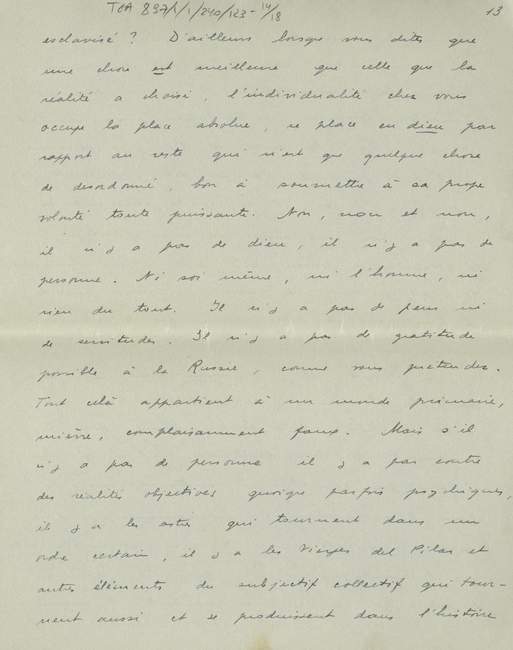 TCA 897/1/1/240/123-14/18
13
esclavisé ? D'ailleurs lorsque vous dites que
une chose est meilleure que celle que la
réalité a choisi, l'individualité chez vous
occupe la place absolue, se place en dieu par
rapport au reste qui n'est que quelque chose
de desordonné, bon à soumettre à sa propre
volonté toute puissante. Non, non et non,
il n'y a pas de dieu, il n'y a pas de
personne. Ni soi même, ni l'homme, ni
rien du tout. Il n'y a pas de ni
de servitudes. Il n'y a pas de gratitude
possible à la Russie, comme vous pretendez.
Tout celà appartient à un monde primaire,
mièvre, complaisamment faux. Mais s'il
n'y a pas de personne il y a par contre
des réalités objectives quoique parfois psychiques,
il y a les astres qui tournent dans un
ordre certain, il y a les Vierges del Pilar et
autres éléments du subjectif collectif qui tour-
nent aussi et se produissent dans l'histoire